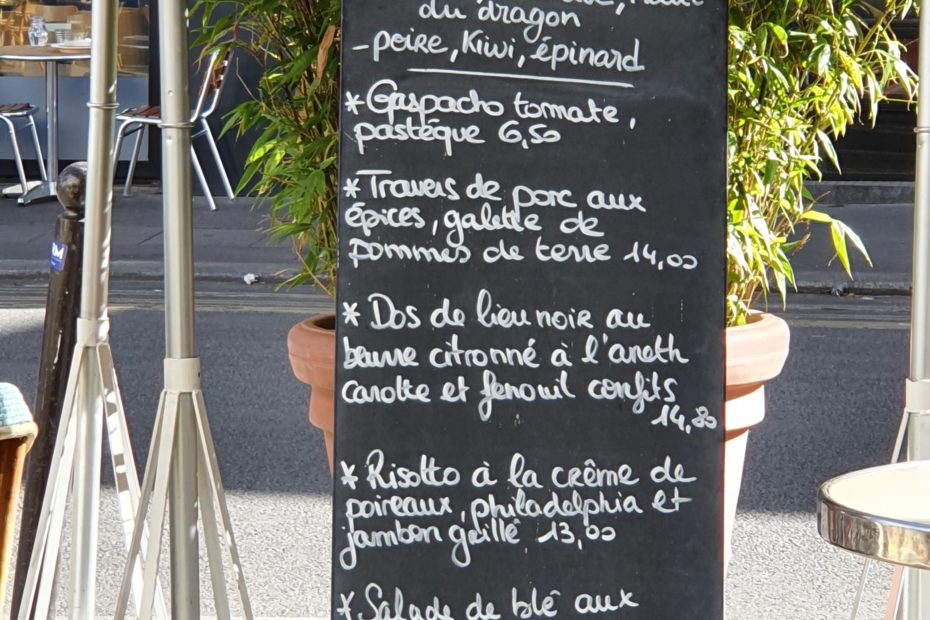 du dragon
-poire, Kiwi, épinard
*Gaspacho tomate,
pastéque 6,50
*Travers de porc aux
épices, galette de
pommes de terre 14,00
* Dos de lieu noir au
beurre citronné à l'aneth
carotte et fenouil confits
14,80
*Risotto à la crême de
poireaux, philadelphia et
jambon grillé 13,00
*Salade de blé aux